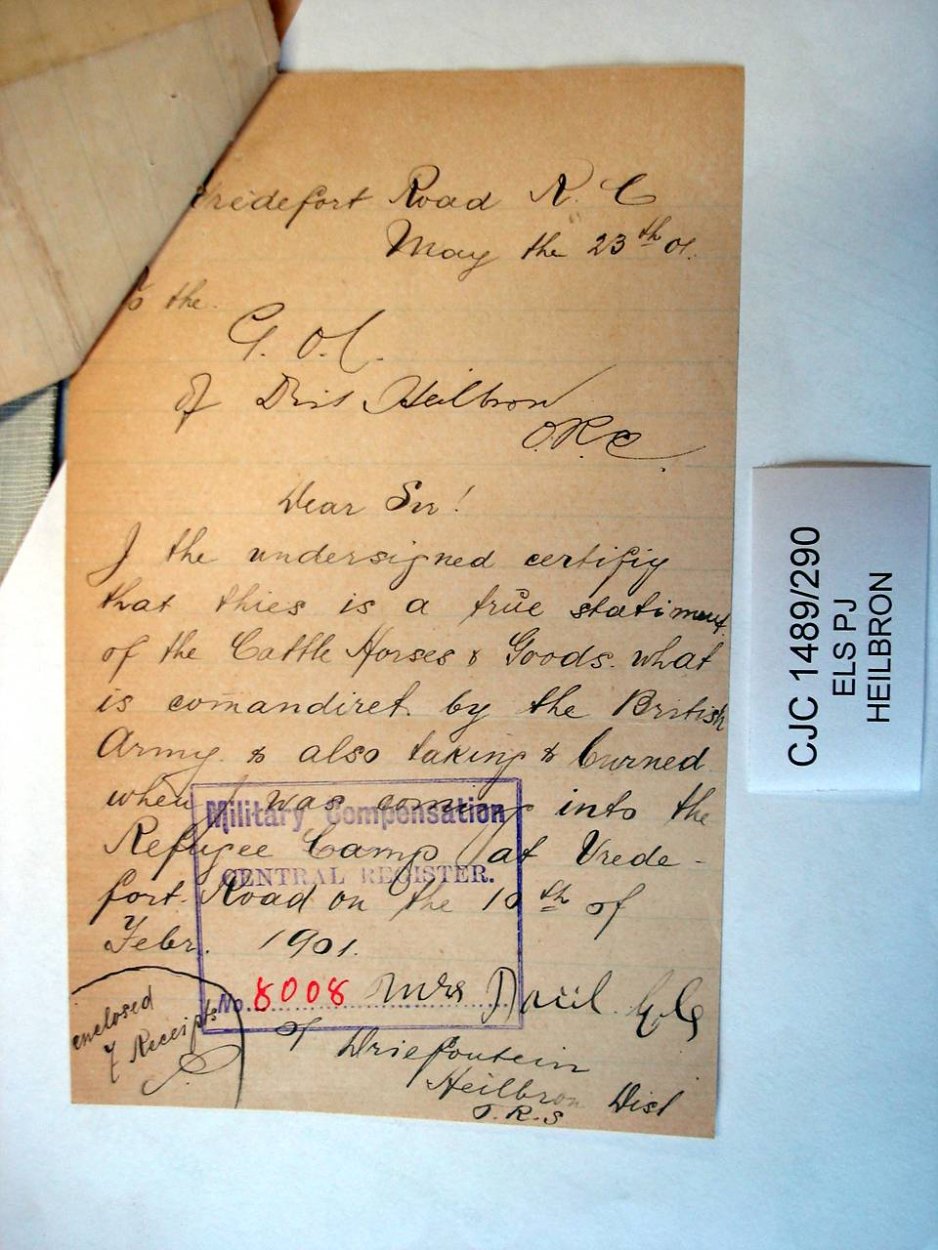 Vredefort Road R. C
May the 23th 01.
To the
G. O. C.
of Dist Heilbron
O.R.C.
Dear Sir!
I the undersigned certifiy
that thies is a true statiment
of the Cattle Horses & Goods. what
is comandiret. by the British
Army. & also taking & burned
when I was coming into the
Refugee Camp at Vrede-
fort. Road on the 10th of
Febr. 1901.
Military Compensation
CENTRAL REGISTER.
No. 8008
Mrs Paul Els
of Driefontein
Heilbron Dist
enclosed
7 Receipts
CJC 1489/290
ELS PJ
HEILBRON